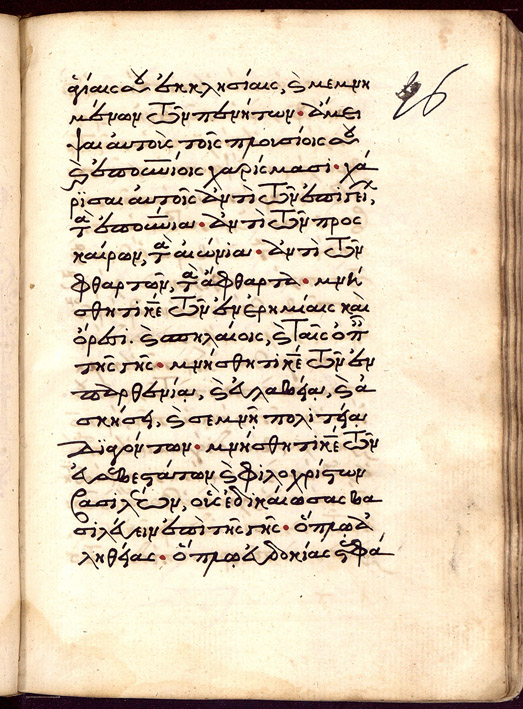 26
ἁγίαις σου ἐκκλησίαις, καὶ μεμνη
μένων τῶν πενήτων· ἄμει
ψαι αὐτοὺς τοῖς πλουσίοις σου
καὶ ἐπουρανίοις χαρίσμασι· χά
ρισαι αὐτοῖς ἀντὶ τῶν ἐπιγείων,
τὰ ἐπουράνια· ἀντὶ τῶν προσ
καίρων, τὰ αἰώνια· ἀντὶ τῶν
φθαρτῶν, τὰ ἄφθαρτα· μνή
σθητι κε τῶν ἐν ἐρημίαις καὶ
ὄρεσι. καὶ σπηλαίοις, καὶ ταῖς ὀπαῖς
τῆς γῆς· μνήσθητι κε τῶν ἐν
παρθενίᾳ, καὶ εὐλαβείᾳ, καὶ ἀ
σκήσει, καὶ σεμνῇ πολιτείᾳ
διαγόντων· μνήσθητι κε τῶν
εὐσεβεστάτων καὶ φιλοχρίστων
βασιλέων, οὓς ἐδικαίωσας βα
σιλεύειν ἐπὶ τῆς γῆς· ὅπλῳ ἀ
ληθείας· ὅπλῳ εὐδοκίας στεφά